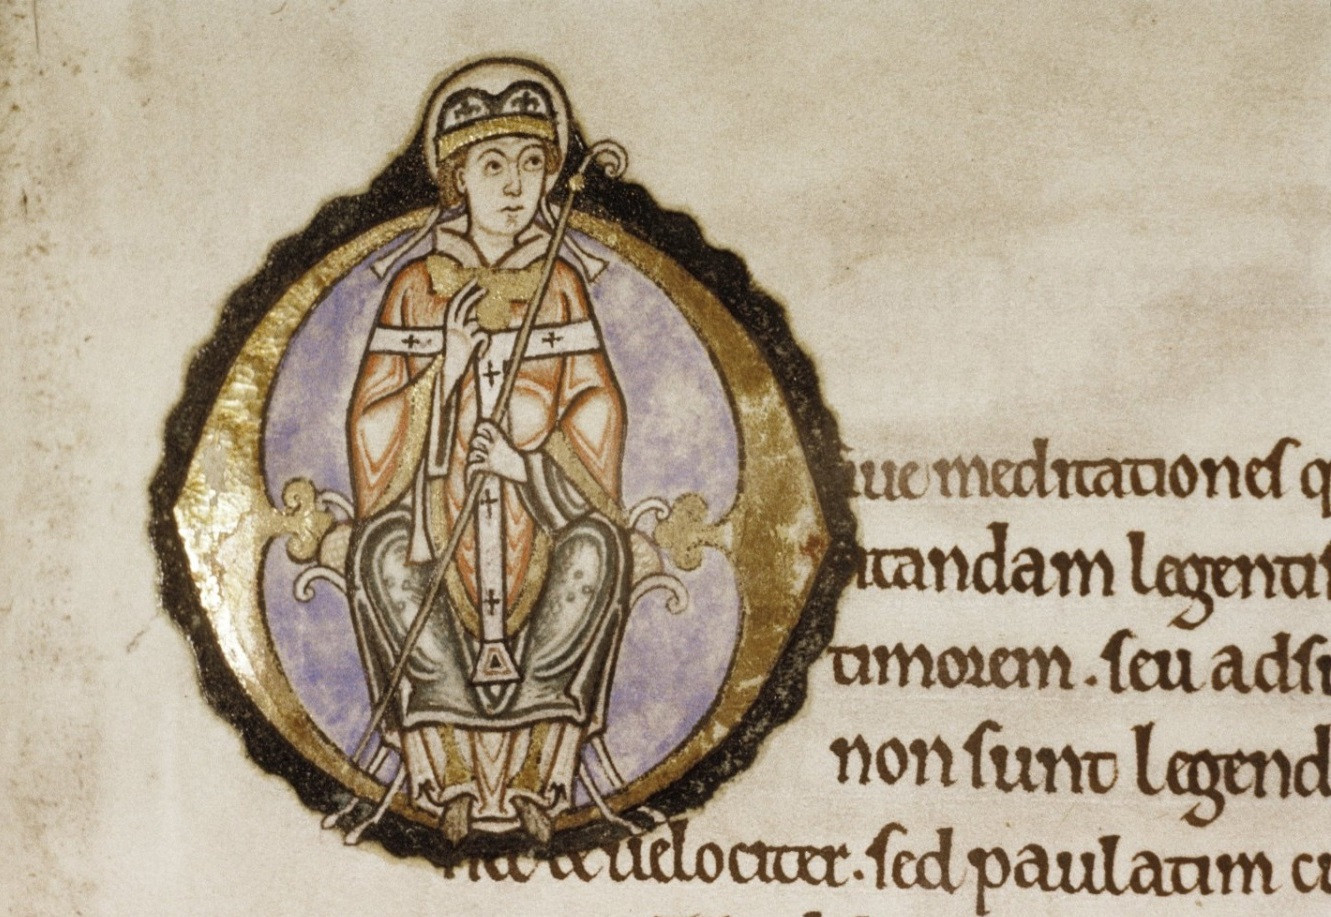 siue meditationes q
itandam legentis
timorem . seu ad su
non sunt legend
uelociter. sed paulatim cu